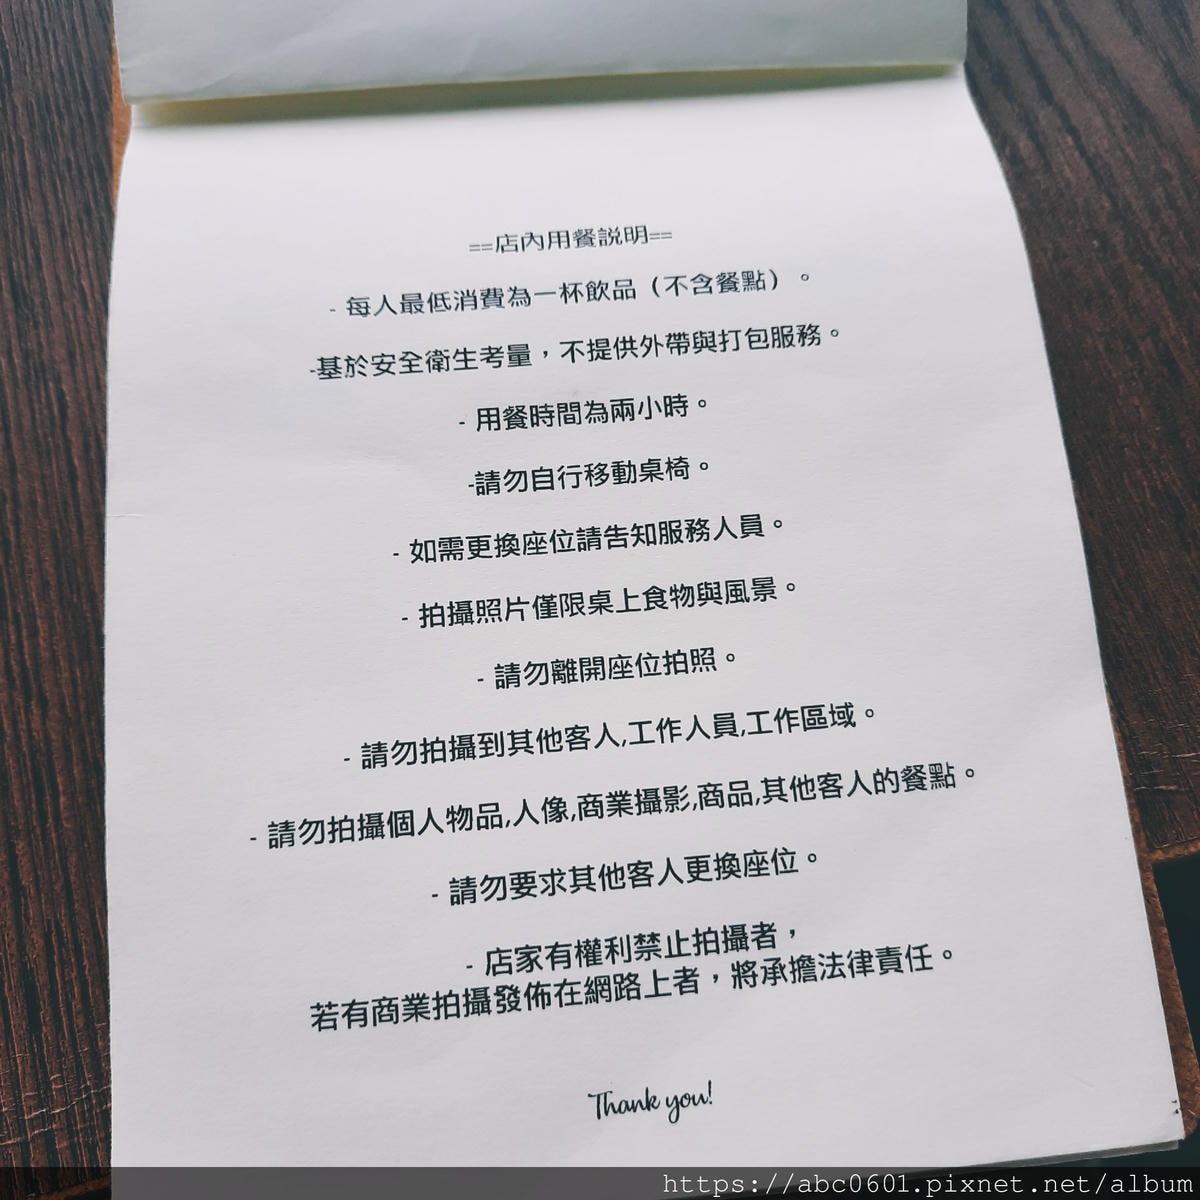 ==店內用餐說明==
- 每人最低消費為一杯飲品（不含餐點）。
-基於安全衛生考量，不提供外帶與打包服務。
- 用餐時間為兩小時。
-請勿自行移動桌椅。
- 如需更換座位請告知服務人員。
- 拍攝照片僅限桌上食物與風景。
- 請勿離開座位拍照。
- 請勿拍攝到其他客人,工作人員,工作區域。
- 請勿拍攝個人物品,人像,商業攝影,商品,其他客人的餐點。
- 請勿要求其他客人更換座位。
- 店家有權利禁止拍攝者，
若有商業拍攝發佈在網路上者，將承擔法律責任。
Thank you!
https://abc0601.pixnet.net/album